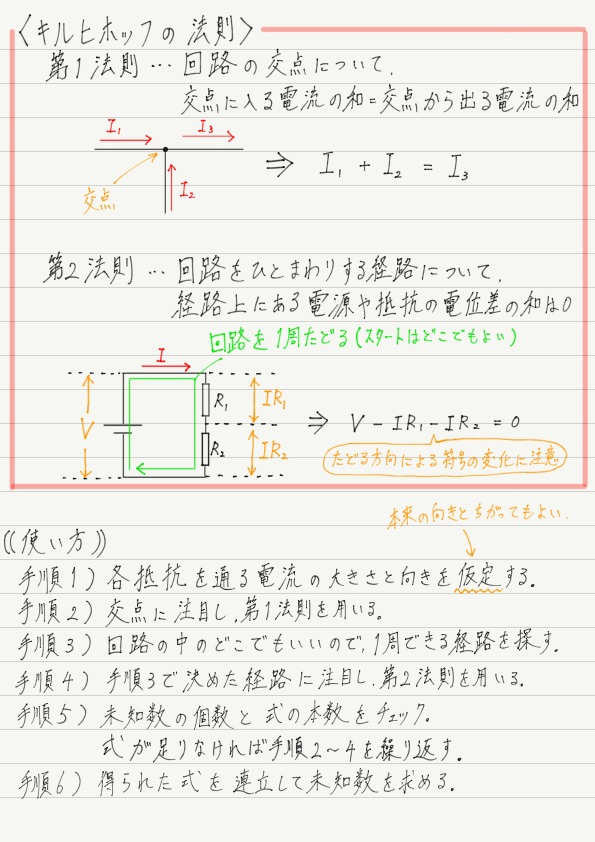 〈キルヒホッフの法則〉
第1法則…回路の交点について、
交点に入る電流の和=交点から出る電流の和
I₁ I₃
⇒ I₁ + I₂ = I₃
I₂
交点
第2法則…回路をひとまわりする経路について、
経路上にある電源や抵抗の電位差の和は0
回路を1周たどる(スタートはどこでもよい)
I
V R₁ IR₁
⇒ V - IR₁ - IR₂ = 0
R₂ IR₂
たどる方向による符号の変化に注意
本来の向きとちがってもよい.
((使い方))
手順1) 各抵抗を通る電流の大きさと向きを仮定する.
手順2) 交点に注目し、第1法則を用いる.
手順3) 回路の中のどこでもいいので、1周できる経路を探す.
手順4) 手順3で決めた経路に注目し、第2法則を用いる.
手順5) 未知数の個数と式の本数をチェック.
式が足りなければ手順2〜4を繰り返す.
手順6) 得られた式を連立して未知数を求める.